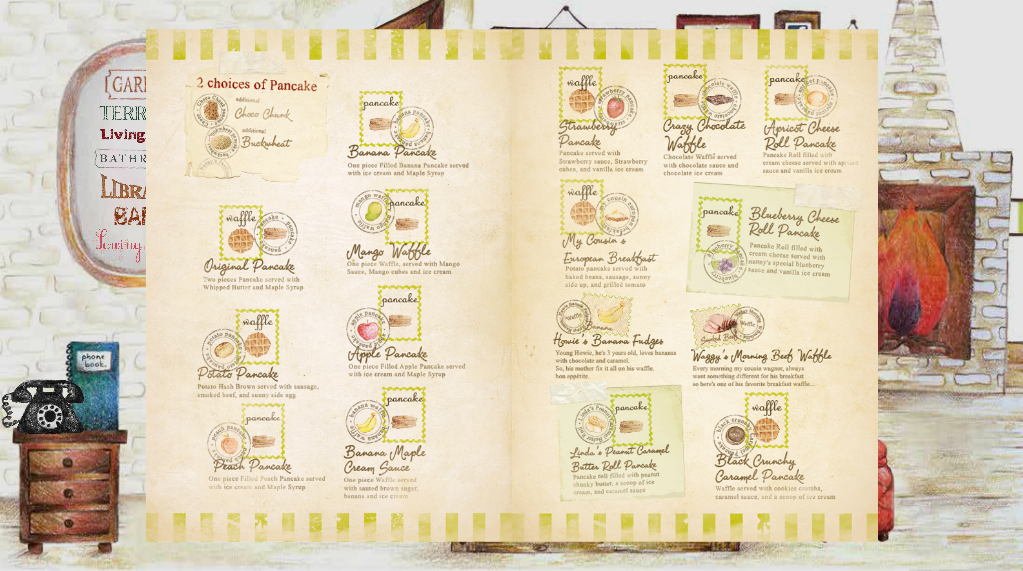 GARD
TERR
Living
BATHR
LIBRA
BAR
phone
book.
2 choices of Pancake
additional
Choco Chunk
additional
Buckwheat
pancake
Banana Pancake
One piece Filled Banana Pancake served
with ice cream and Maple Syrup
waffle
Original Pancake
Two pieces Pancake served with
Whipped Butter and Maple Syrup
mango waffle
pancake
Mango Waffle
One piece Waffle, served with Mango
Sauce, Mango cubes and ice cream
waffle
Potato Pancake
Potato Hash Brown served with sausage,
smoked beef, and sunny side egg
pancake
apple pancake
Apple Pancake
One piece Filled Apple Pancake served
with ice cream and Maple Syrup
pancake
peach pancake
Peach Pancake
One piece Filled Peach Pancake served
with ice cream and Maple Syrup
pancake
banana waffle
Banana Maple
Cream Sauce
One piece Waffle served
with sauted brown sugar,
banana and ice cream
waffle
Strawberry
Pancake
Pancake served with
Strawberry sauce, Strawberry
cubes, and vanilla ice cream
pancake
Crazy Chocolate
Waffle
Chocolate Waffle served
with chocolate sauce and
chocolate ice cream
pancake
Apricot Cheese
Roll Pancake
Pancake Roll filled with
cream cheese served with apricot
sauce and vanilla ice cream
waffle
My Cousin's
European Breakfast
Potato pancake served with
baked beans, sausage, sunny
side up, and grilled tomato
pancake
Blueberry Cheese
Roll Pancake
Pancake Roll filled with
cream cheese served with
nanny's special blueberry
sauce and vanilla ice cream
Waffle
Banana
Howie's Banana Fudges
Young Howie, he's 5 years old, loves banana
with chocolate and caramel.
So, his mother fix it all on his waffle.
bon appetite.
Waffle
Smoked Beef
Waggy's Morning Beef Waffle
Every morning my cousin wagner, always
want something different for his breakfast
so here's one of his favorite breakfast waffle...
pancake
Linda's Peanut Caramel
Butter Roll Pancake
Pancake roll filled with peanut
chunky butter, a scoop of ice
cream, and caramel sauce
waffle
Black Crunchy
Caramel Pancake
Waffle served with cookies crumbs,
caramel sauce, and a scoop of ice cream